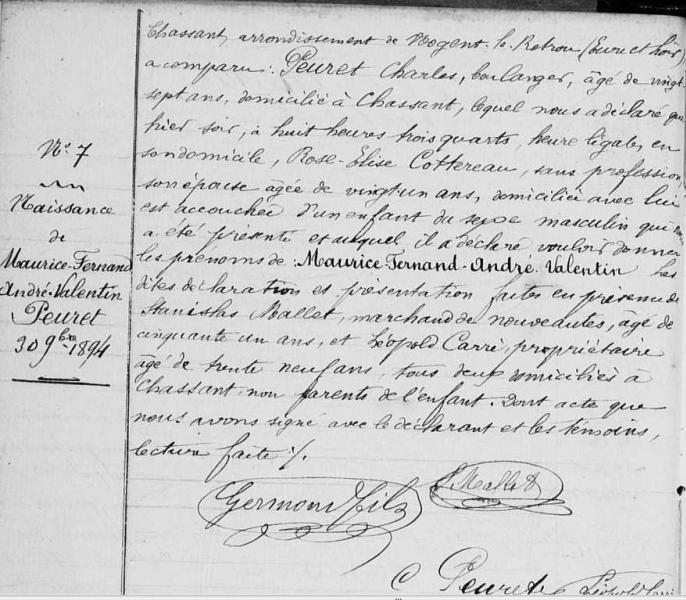 Nº 7
Naissance
de
Maurice-Fernand
André-Valentin
Peuret
30 9bre 1894
Chassant, arrondissement de Nogent-le-Rotrou (Eure et Loir)
a comparu: Peuret Charles, boulanger, âgé de vingt
sept ans, domicilié à Chassant, lequel nous a déclaré que
hier soir, à huit heures trois quarts, heure légale, en
son domicile, Rose-Elise Cottereau, sans profession
son épouse âgée de vingt un ans, domiciliée avec lui
est accouchée d'un enfant du sexe masculin qu'il
a été présenté et auquel il a déclaré vouloir donner
les prénoms de: Maurice-Fernand-André-Valentin Les
dites déclaration et présentation faites en présence de
Stanislas Mallet, marchand de nouveautés, âgé de
cinquante un ans, et Léopold Carré, propriétaire
âgé de trente neuf ans, tous deux domiciliés à
Chassant, non parents de l'enfant. Dont acte que
nous avons signé avec le déclarant et les témoins,
lecture faite ./.
Germond fils
Mallet
C Peuret
Léopold